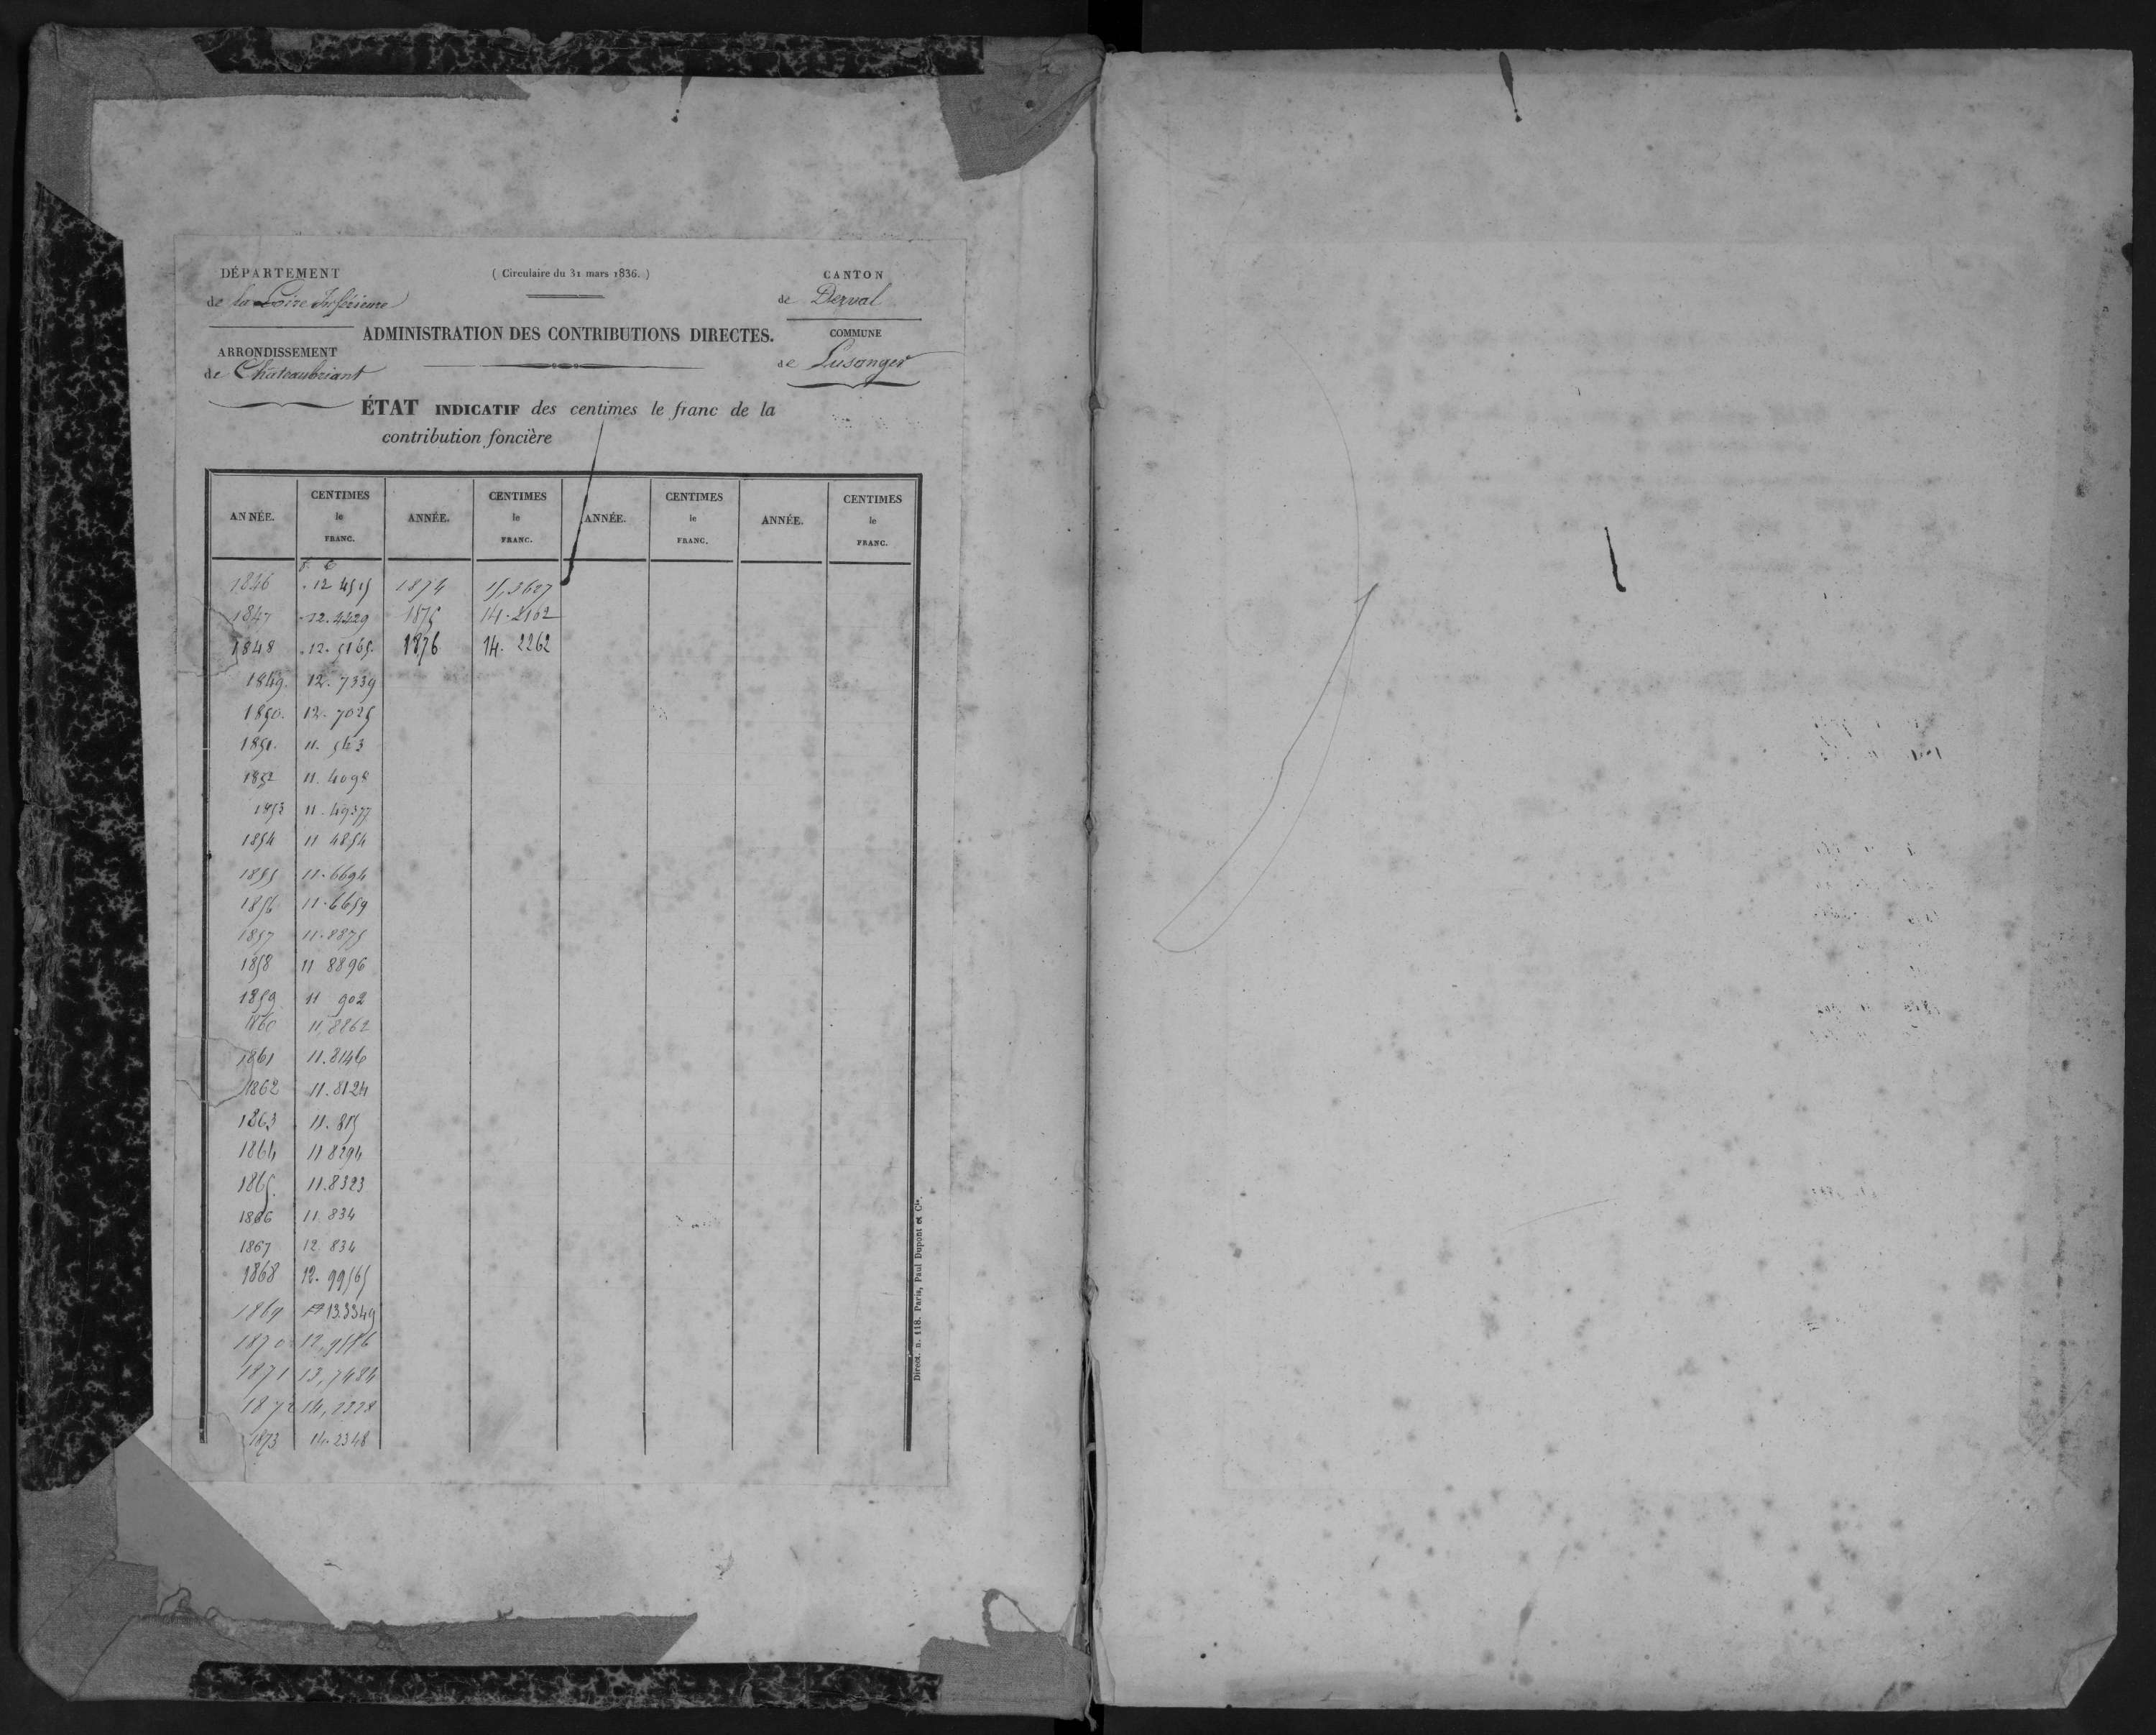 DÉPARTEMENT
de la Loire Inférieure
ARRONDISSEMENT
de Châteaubriant
( Circulaire du 31 mars 1836. )
ADMINISTRATION DES CONTRIBUTIONS DIRECTES.
CANTON
de Derval
COMMUNE
de Lusanger
ÉTAT INDICATIF des centimes le franc de la
contribution foncière
ANNÉE. CENTIMES le FRANC. ANNÉE. CENTIMES le FRANC. ANNÉE. CENTIMES le FRANC. ANNÉE. CENTIMES le FRANC.
f. c
1846 . 12 4515 1874
1847 . 12. 4429 1875 14. 2162
1848 . 12. 5165. 1876 14. 2262
1849. 12. 7339
1850. 12. 7025
1851. 11. 543
1852 11. 4098
1853 11. 49377
1854 11 4854
1855 11. 6694
1856 11. 6659
1857 11. 8875
1858 11 8896
1859 11 902
1860 11,8862
1861 11. 8146
1862 11. 8124
1863 11. 815
1864 11 8294
1865. 11. 8323
1866 11. 834
1867 12. 834
1868 12. 99565
1869 13.3349
1870
1871 13,7484
1872 14,2228
1873 14. 2348
Direct. n. 118. Paris, Paul Dupont et Cie.